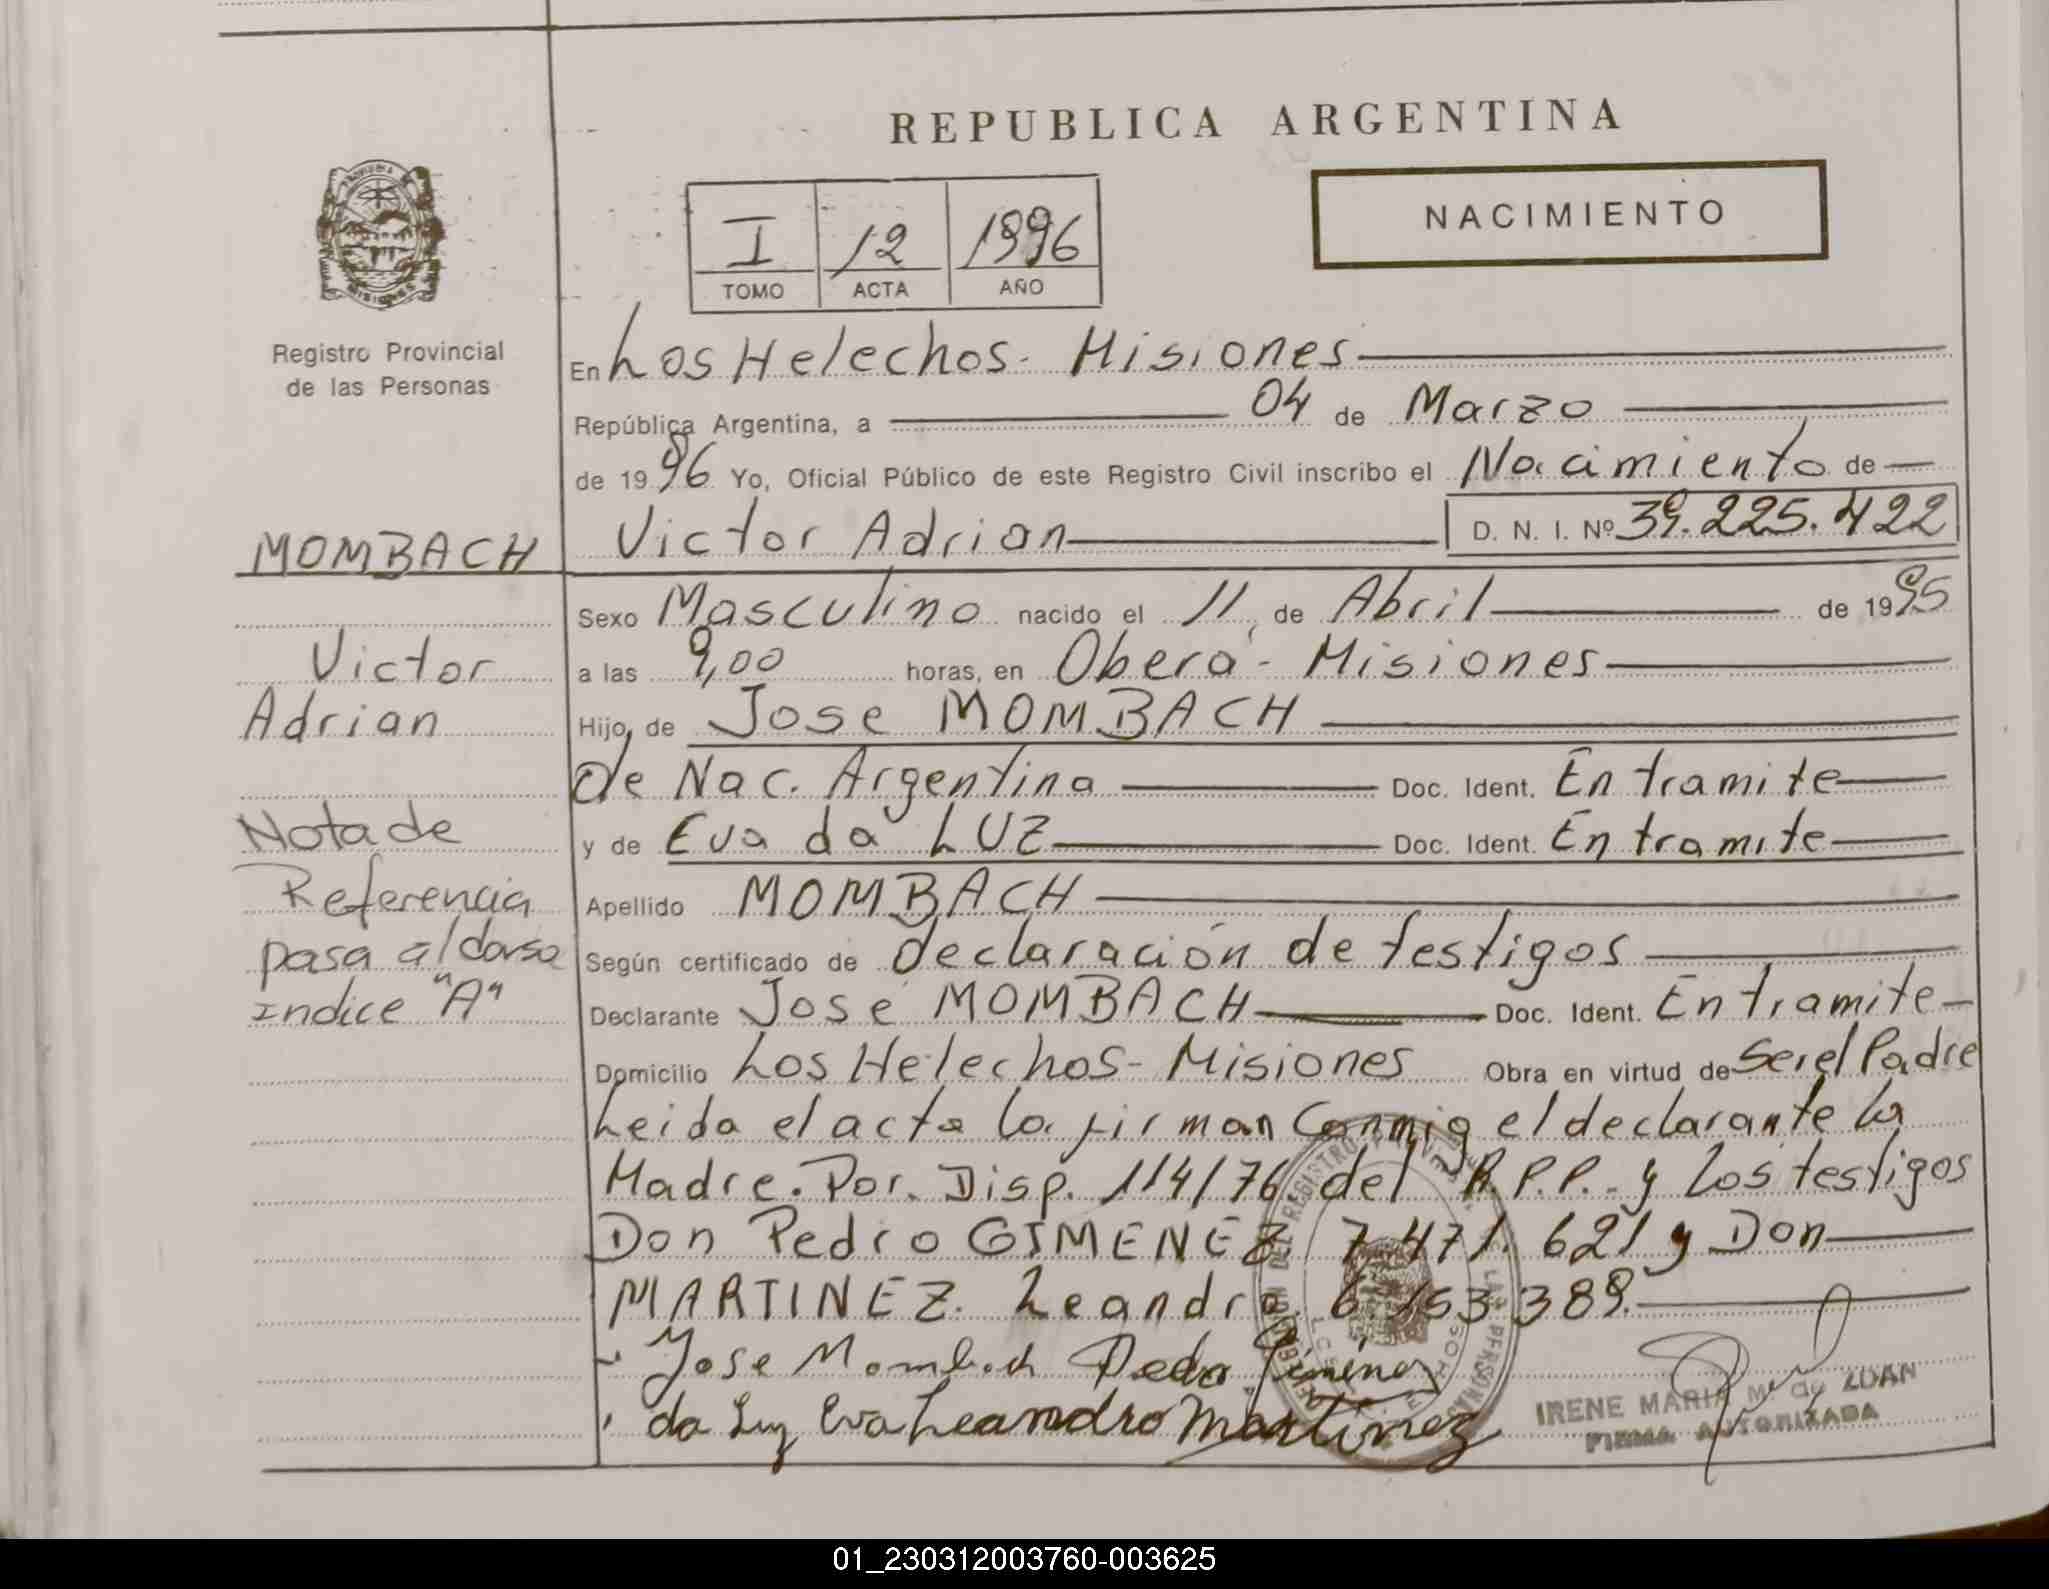 REPUBLICA ARGENTINA
NACIMIENTO
I 12 1996
TOMO ACTA AÑO
MISIONES
Registro Provincial
de las Personas
En Los Helechos - Misiones
República Argentina, a 04 de Marzo
de 1996 Yo, Oficial Público de este Registro Civil inscribo el Nacimiento de
MOMBACH Victor Adrian D. N. I. Nº 39.225.422
Sexo Masculino nacido el 11 de Abril de 1995
Victor a las 9,00 horas, en Oberá - Misiones
Adrian Hijo de Jose MOMBACH
de Nac. Argentina Doc. Ident. En tramite
Nota de y de Eva da LUZ Doc. Ident. En tramite
Referencia Apellido MOMBACH
pasa al dorso Según certificado de declaración de testigos
indice "A" Declarante Jose MOMBACH Doc. Ident. En tramite
Domicilio Los Helechos - Misiones Obra en virtud de Ser el Padre
Leida el acta la firman Conmig el declarante la
Madre. Por. Disp. 114/76 del R.P.P. y los testigos
Don Pedro GIMENEZ 7.471.621 y Don
MARTINEZ. Leandro 6.153.389.
Jose Mombach Pedro Jimenez
da Luz Eva Leandro Martinez
IRENE MARIA M. de LUAN
FIRMA AUTORIZADA
01_230312003760-003625